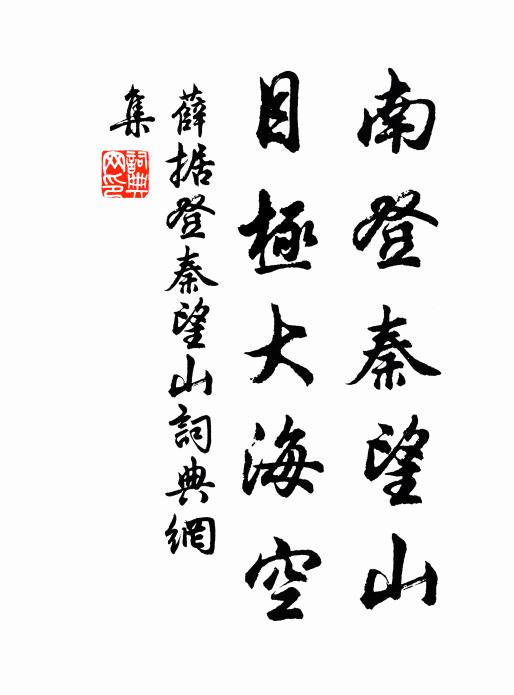 南登秦望山
目極大海空
薛据登秦望山詞典網
集
詞典
网印